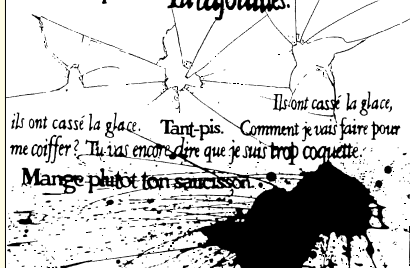 Ils ont cassé la glace,
ils ont cassé la glace. Tant-pis. Comment je vais faire pour
me coiffer ? Tu vas encore dire que je suis trop coquette.
Mange plutot ton saucisson.